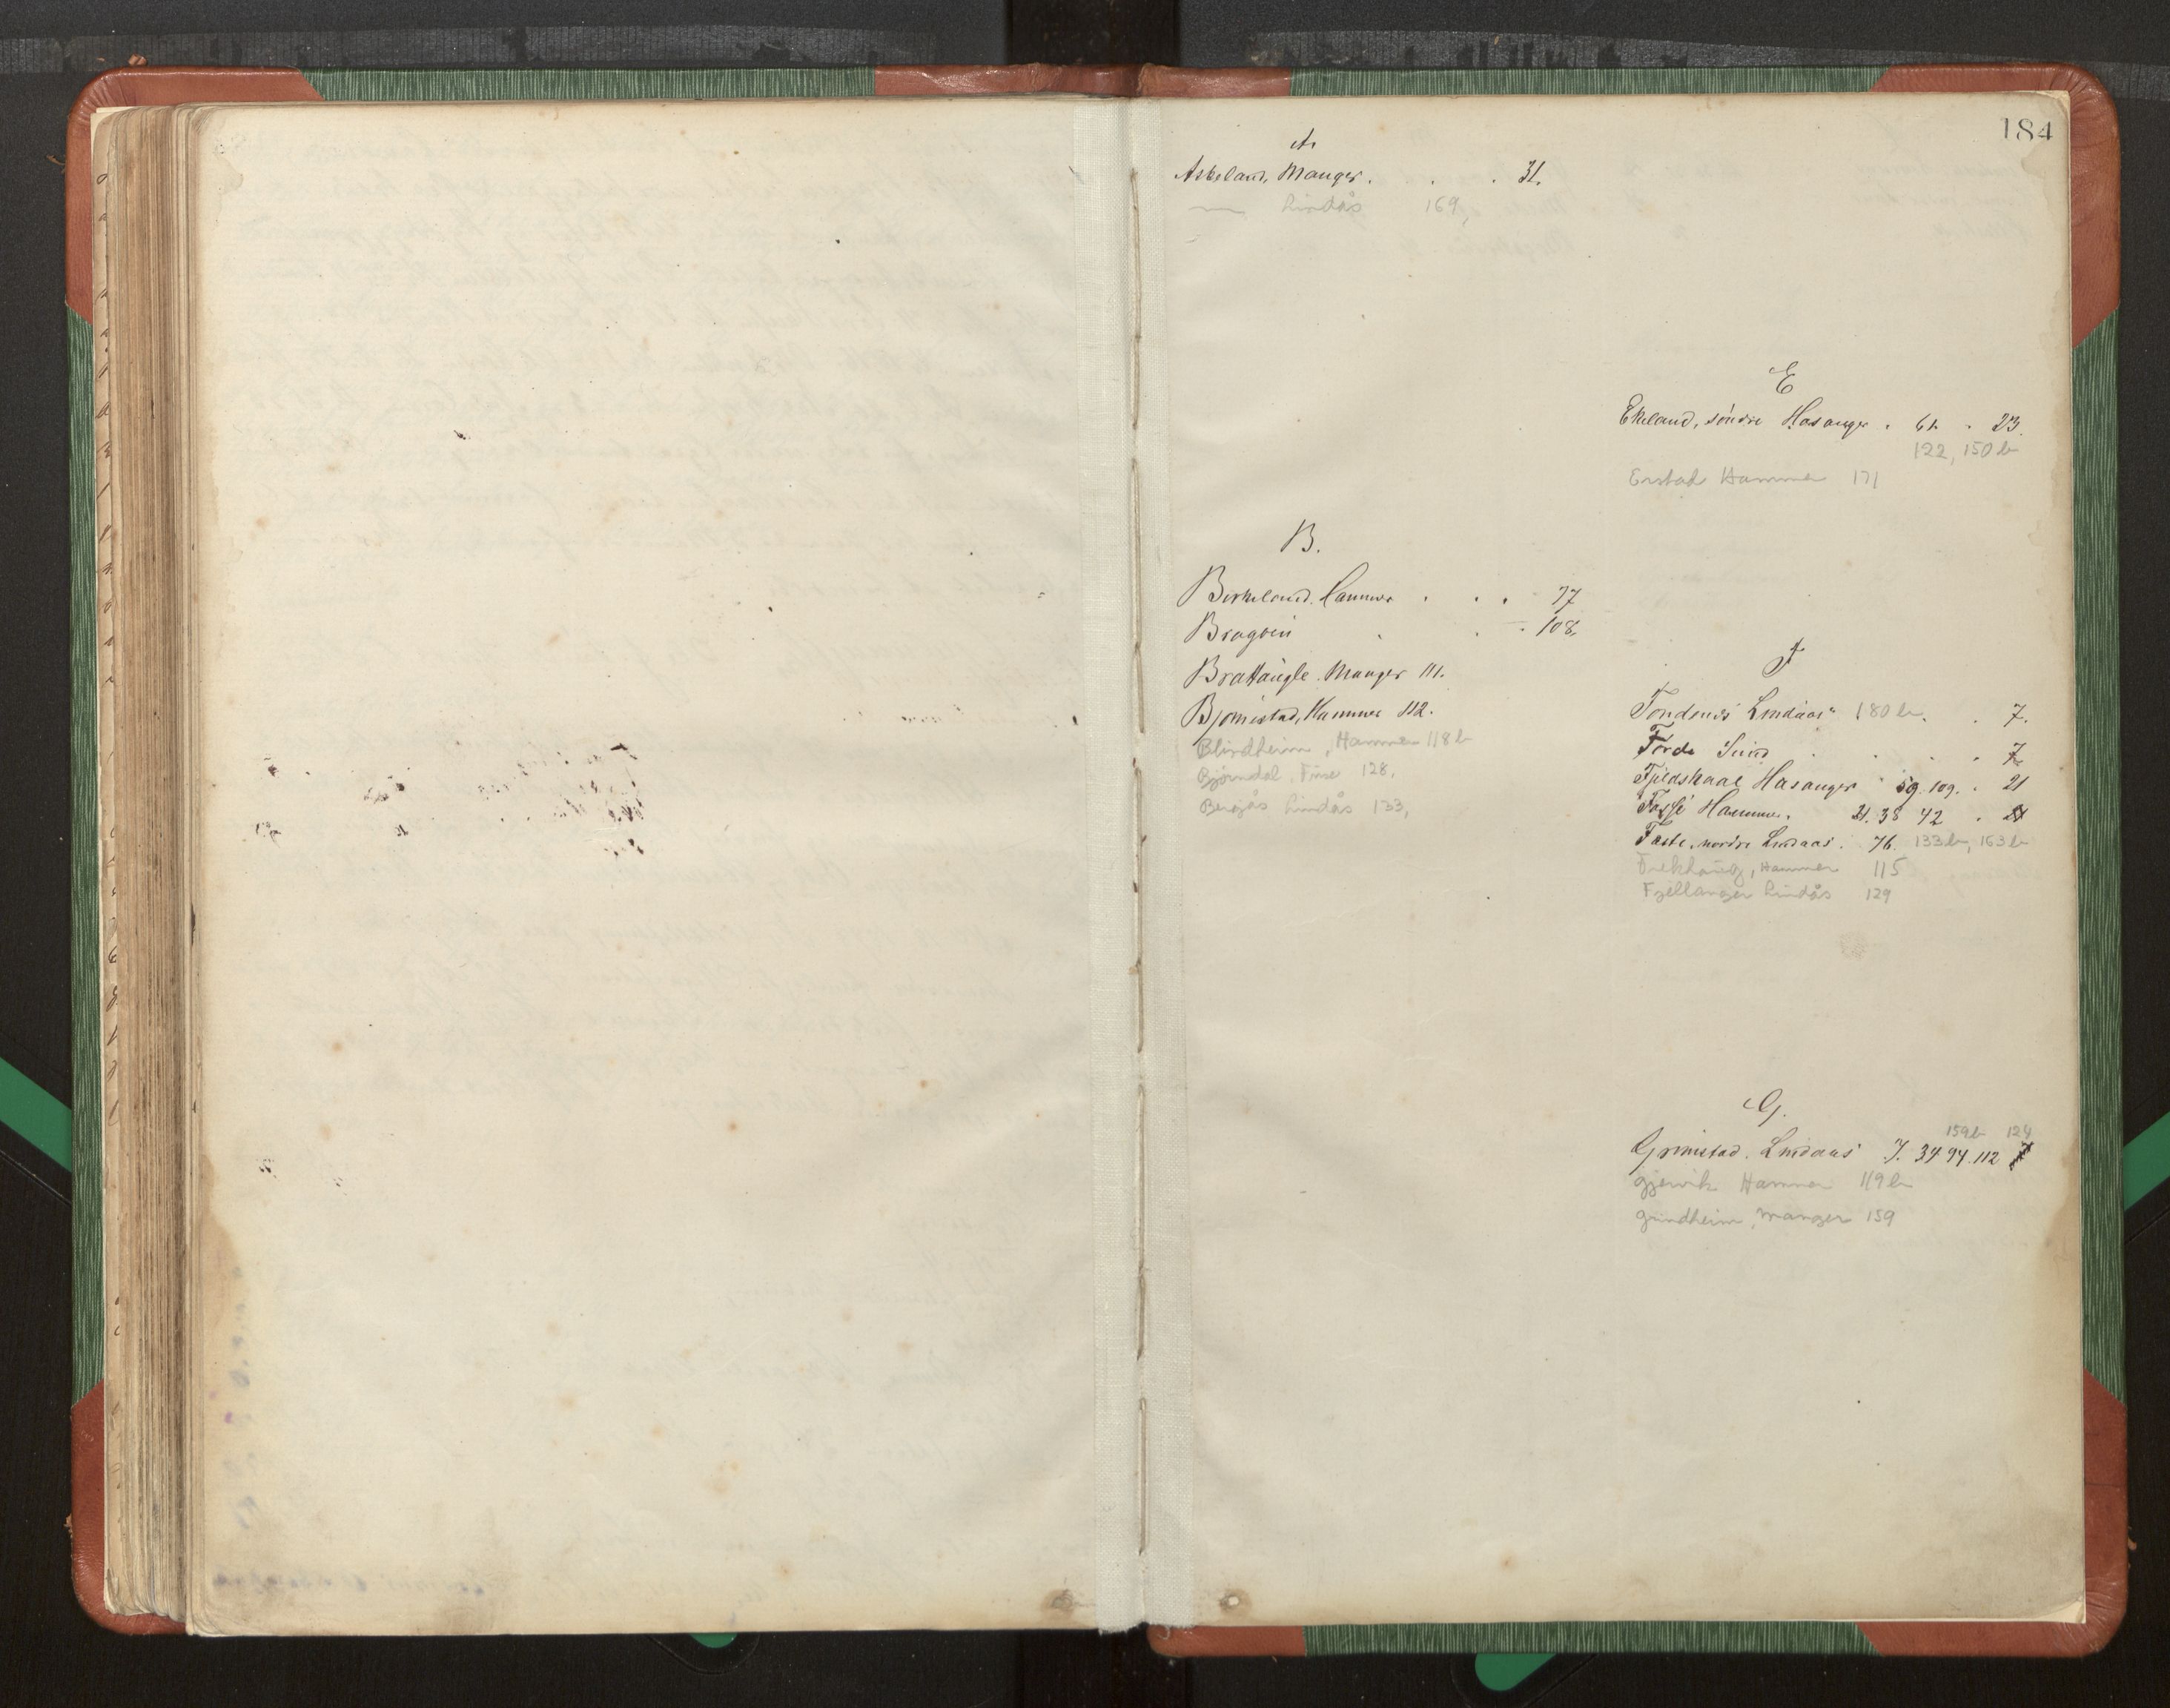 184
A.
Askeland, Manger. . . 31.
— Lindås 169,
B.
Birkeland. Hammer . . . 77
Bragvin . . . 108.
Brattaúgle. Manger 111.
Bjørnistad, Hammer 112.
Blindheim, Hammer 118b
Bjørndal. Fuse 128,
Bergås Lindås 133,
E
Ekeland, søndre Hosanger . 61. . 23.
122, 150b
Erstad Hammer 171
F
Fondenes Lindaas 180b. . 7.
Førde Sund . . . . 7
Fjeldskaal Hosanger 59. 109. . 21
Fosse Hammer. 21. 38 42 .
Foste, nordre Lindaas. 76. 133b, 163b
Frekhaúg, Hammer 115
Fjellanger Lindås 129
G.
159b 124
Grimstad. Lindaas 7. 34 94. 112
Gjervik Hammer 119b
Grindheim, Manger 159